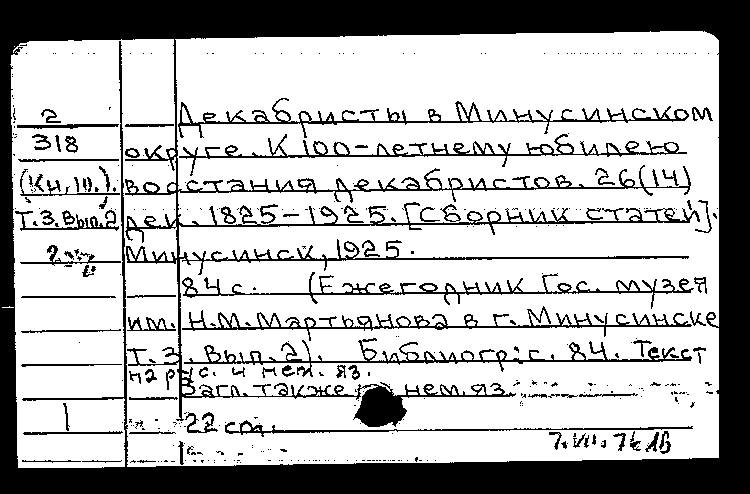 2 Декабристы в Минусинском
318 округе. К 100-летнему юбилею
(Кн.10.). восстания декабристов. 26(14)
Т.3.Вып.2 дек. 1825-1925. [Сборник статей].
Минусинск, 1925.
84 с. (Ежегодник Гос. музея
им. Н.М.Мартьянова в г. Минусинске
Т.3. Вып.2). Библиогр: с. 84. Текст
на рус. и нем. яз.
Загл. также нем. яз.
1 22 см.